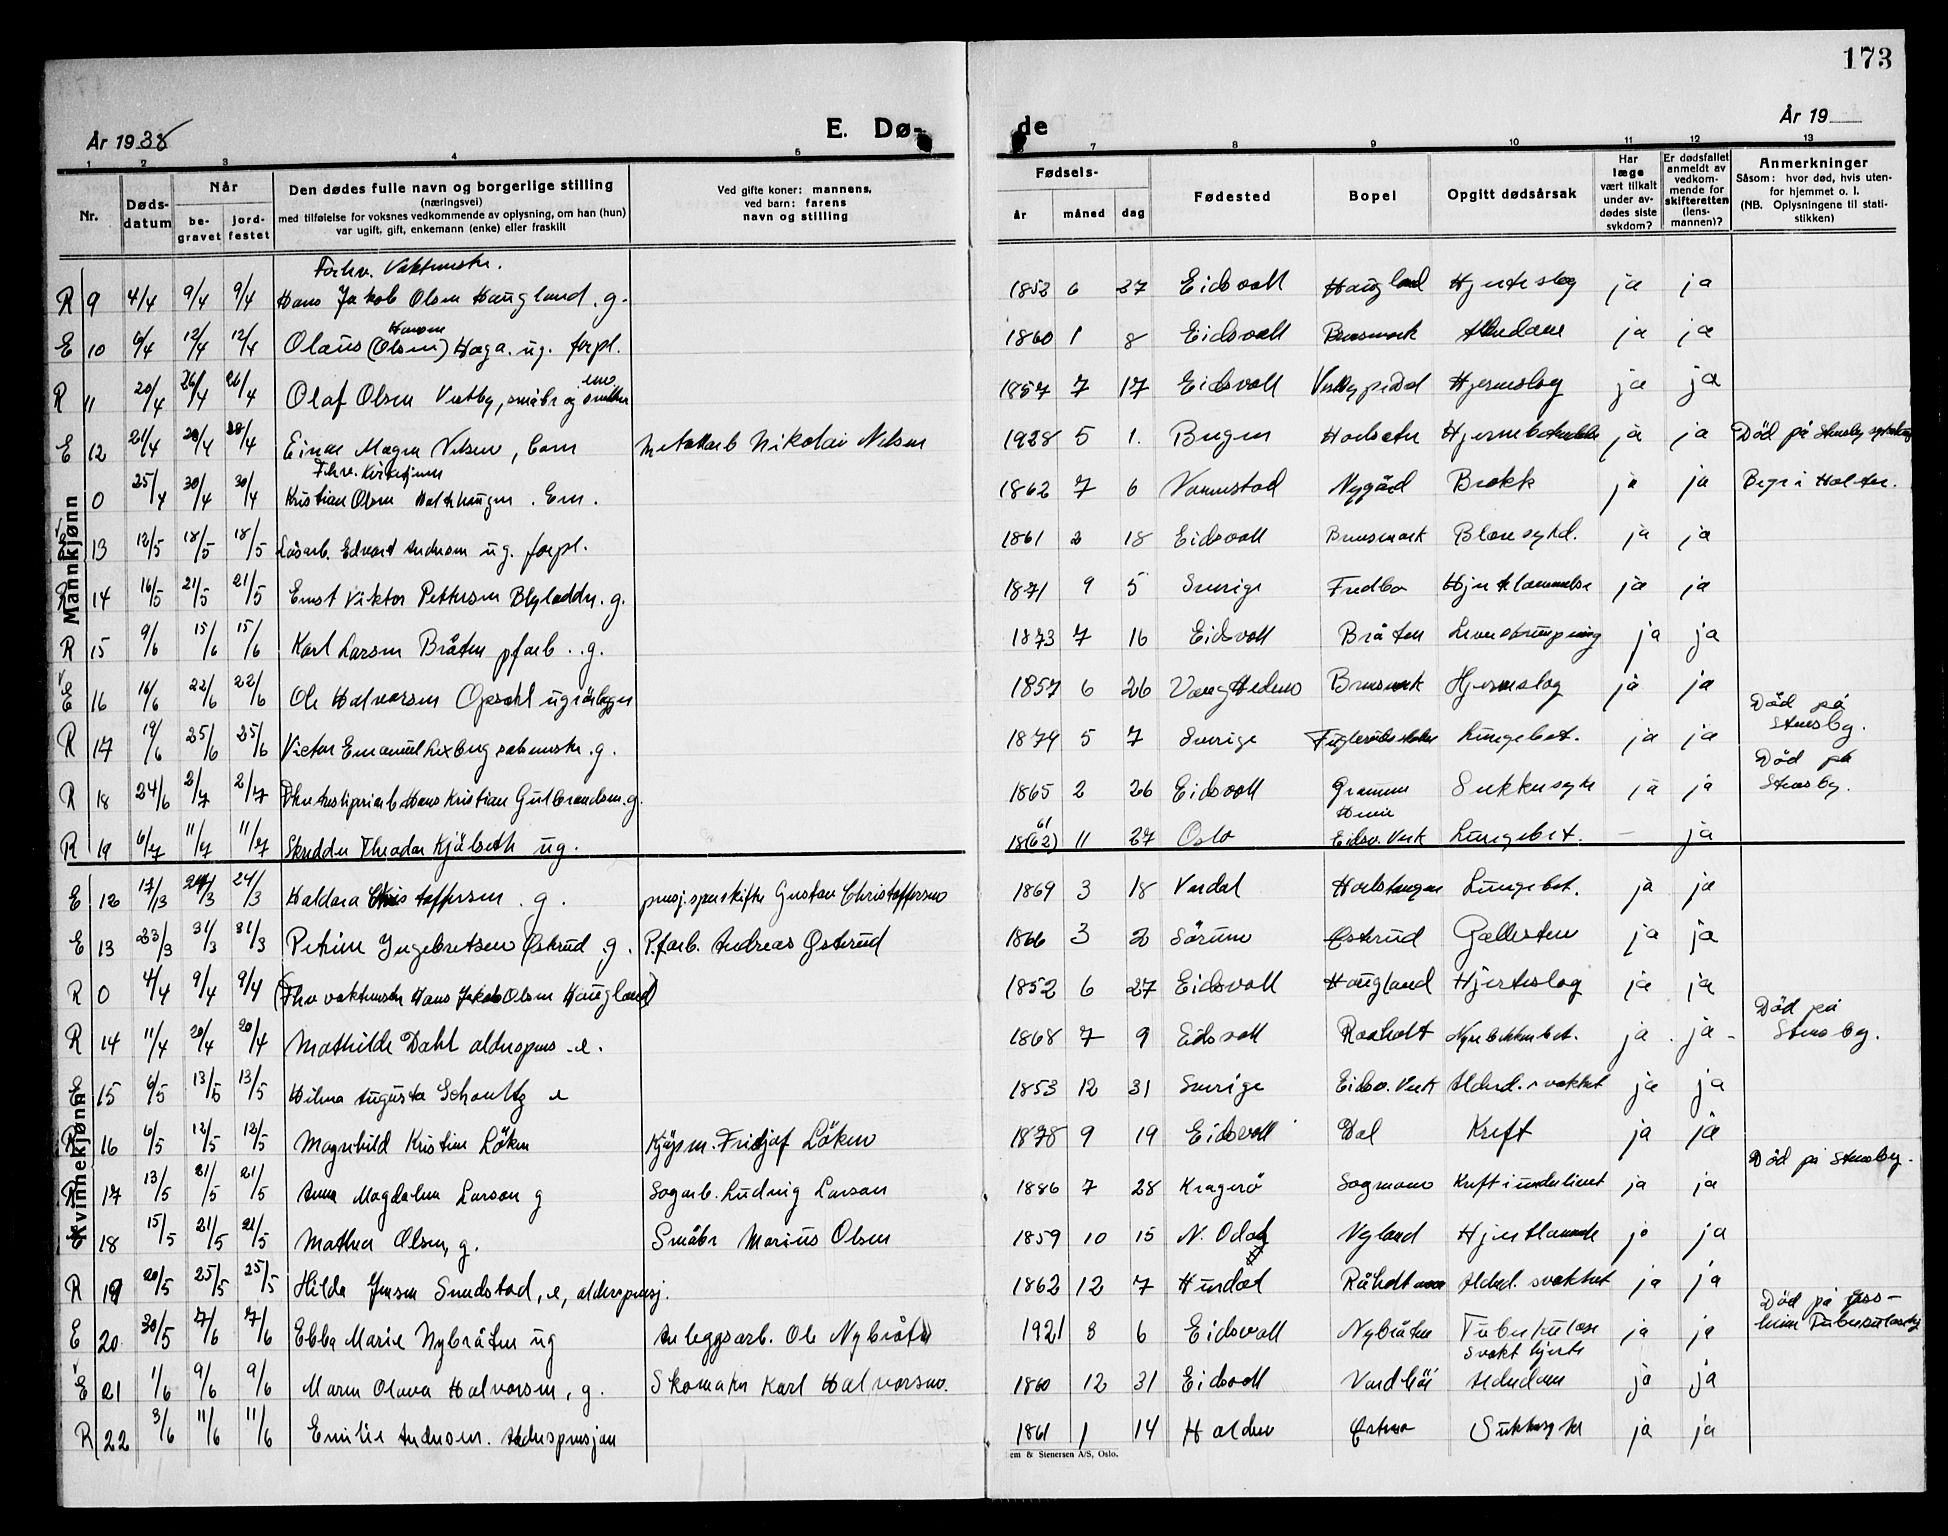 173
År 1938
E. Dø-
de
År 19
1 2 3 4 5
7 8 9 10 11 12 13
Nr.
Døds-
datum
Når
be-
gravet
jord-
festet
Den dødes fulle navn og borgerlige stilling
(næringsvei)
med tilføielse for voksnes vedkommende av oplysning, om han (hun)
var ugift, gift, enkemann (enke) eller fraskilt
Ved gifte koner: mannens,
ved barn: farens
navn og stilling
Fødsels-
år måned dag
Fødested
Bopel
Opgitt dødsårsak
Har
læge
vært tilkalt
under av-
dødes siste
sykdom?
Er dødsfallet
anmeldt av
vedkom-
mende for
skifteretten
(lens-
mannen)?
Anmerkninger
Såsom: hvor død, hvis uten-
for hjemmet o. l.
(NB. Oplysningene til stati-
stikken)
Mannkjønn
Forhv. Vaktmstr.
R 9 4/4 9/4 9/4 Hans Jakob Olsen Haugland. g. 1852 6 27 Eidsvoll Haugland Hjerteslag ja ja
Hansen
E 10 6/4 12/4 12/4 Olaus (Olsen) Haga. ug. forpl. 1860 1 8 Eidsvoll Bunsmork Alderdom ja ja
em.
R 11 20/4 26/4 26/4 Olaf Olsen Vestby, småbr og 1857 7 17 Eidsvoll Hjerneslag ja ja
E 12 21/4 28/4 28/4 Einar Magne Nilsen, barn Metallarb Nikolai Nilsen 1928 5 1. Bergen ja ja Död på Stensby
Fhv. Kirketjener
0 25/4 30/4 30/4 Kristian Olsen . Em. 1862 7 6 Nygård Brokk ja ja Begr i Holter.
E 13 12/5 18/5 18/5 Løsarb. Edvart Andersen ug. forpl. 1861 2 18 Eidsvoll Bunsmork Blæresykd. ja ja
R 14 16/5 21/5 21/5 Ernst Viktor Pettersen . g. 1871 9 5 Sverige Fredbo Hjertelammelse ja ja
R 15 9/6 15/6 15/6 Karl Larsen Bråten pfarb . . g. 1873 7 16 Eidsvoll Bråten ja ja
E 16 16/6 22/6 22/6 Ole Halvorsen Opsahl ug 1857 6 26 Vang Hedmo Bunsmork Hjerneslag ja ja
R 17 19/6 25/6 25/6 Victor Emanuel . g. 1874 5 7 Sverige Lungebet. ja ja Död på
Stensby.
R 18 24/6 2/7 2/7 Hans Kristian Gulbrandsen. g. 1865 2 26 Eidsvoll Sukkersyke ja ja Död på
Stensby.
R 19 6/7 11/7 11/7 Skredder Theodor Kjölseth ug. 61 18(62) 11 27 Oslo Eidsv. Verk Lungebet. — ja
Kvinnekjønn
E 12 17/3 24/3 24/3 Haldora Christoffersen . g. Gustav Christoffersen 1869 3 18 Lungebet. ja ja
E 13 23/3 31/3 31/3 Petrine Ingebretsen Østerud . g. P.farb. Andreas Østerud 1866 3 2 Sörum Østerud Gallesten ja ja
R 0 4/4 9/4 9/4 (Fhv vaktmstr Hans Jakob Olsen Haugland) 1852 6 27 Eidsvoll Haugland Hjerteslag ja ja
R 14 11/4 20/4 20/4 Mathilde Dahl alderspens . e. 1868 7 9 Eidsvoll Raaholt Nyrebekkenbet. ja ja Död på
Stensby.
E 15 6/5 13/5 13/5 Hilma Augusta Schoultz e 1853 12 31 Sverige Eidsv. Verk Alderd. svakhet ja ja
R 16 6/5 12/5 12/5 Magnhild Kristine Löken Kjöpm. Fridjof Löken 1878 9 19 Eidsvoll Dal Kreft ja ja
R 17 13/5 21/5 21/5 Anna Magdalena Larsen g Sagarb. Ludvig Larsen 1886 7 28 Kragerö Sagmoen Kreft i underlivet ja ja Död på Stensby.
E 18 15/5 21/5 21/5 Mathea Olsen, g. Småbr Marius Olsen 1859 10 15 N. Odal Nyland ja ja
R 19 20/5 25/5 25/5 Hilda Jensen Sundstad, e, alderspensj. 1862 12 7 Hurdal Råholt Alderd. svakhet ja ja
E 20 30/5 7/6 7/6 Ebba Marie Nybråten ug Anleggsarb. Ole Nybråten 1921 3 6 Eidsvoll Nybråten Tuberkulose ja ja Död på
svakt hjerte
E 21 1/6 9/6 9/6 Maren Olava Halvorsen, g. Skomaker Karl Halvorsen. 1860 12 31 Eidsvoll Alderdom ja ja
R 22 3/6 11/6 11/6 Emilie Andersen. Alderspensjon 1861 1 14 Halden Sukkersyke ja ja
em & Stenersen A/S, Oslo.